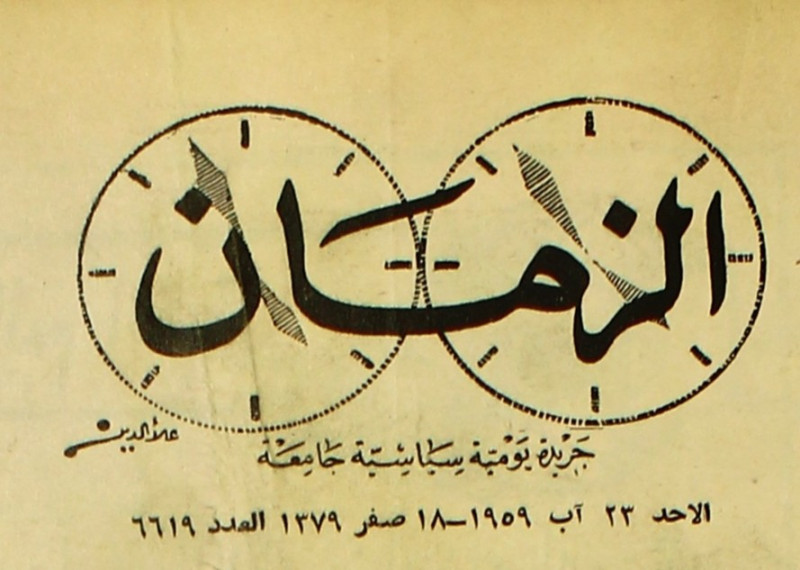 الزمان
علاءالدين
جَرْيِدة يَوْميَّة سِيَاسِيَّة جَامِعَة
الاحد ٢٣ آب ١٩٥٩–١٨ صفر ١٣٧٩ العدد ٦٦١٩